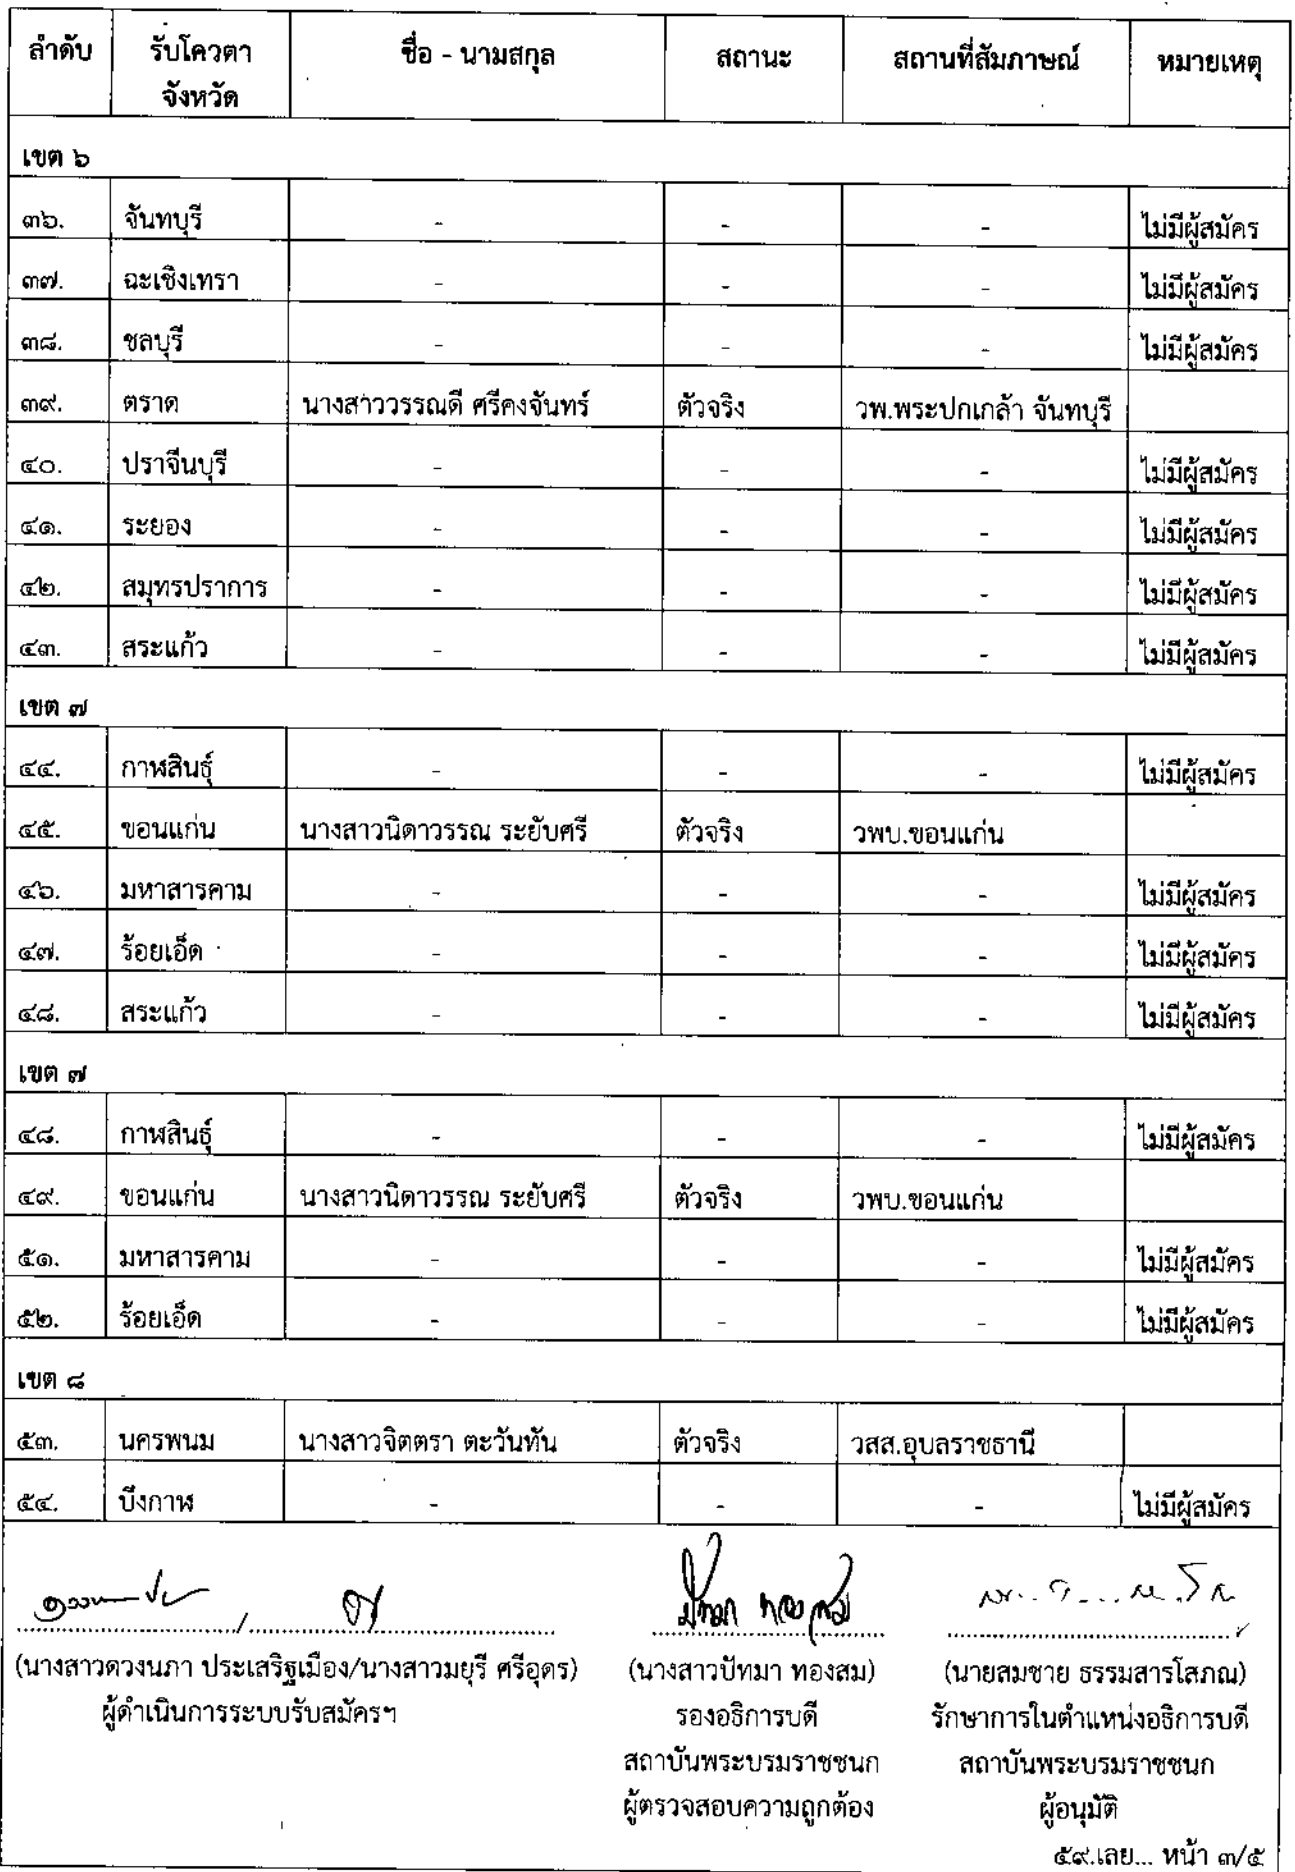 ลำดับ รับโควตา ชื่อ - นามสกุล สถานะ สถานที่สัมภาษณ์ หมายเหตุ
จังหวัด
เขต ๖
๓๖. จันทบุรี - - - ไม่มีผู้สมัคร
๓๗. ฉะเชิงเทรา - - - ไม่มีผู้สมัคร
๓๘. ชลบุรี - - - ไม่มีผู้สมัคร
๓๙. ตราด นางสาววรรณดี ศรีคงจันทร์ ตัวจริง วพ.พระปกเกล้า จันทบุรี
๔๐. ปราจีนบุรี - - - ไม่มีผู้สมัคร
๔๑. ระยอง - - - ไม่มีผู้สมัคร
๔๒. สมุทรปราการ - - - ไม่มีผู้สมัคร
๔๓. สระแก้ว - - - ไม่มีผู้สมัคร
เขต ๗
๔๔. กาฬสินธุ์ - - - ไม่มีผู้สมัคร
๔๕. ขอนแก่น นางสาวนิดาวรรณ ระยับศรี ตัวจริง วพบ.ขอนแก่น
๔๖. มหาสารคาม - - - ไม่มีผู้สมัคร
๔๗. ร้อยเอ็ด - - - ไม่มีผู้สมัคร
๔๘. สระแก้ว - - - ไม่มีผู้สมัคร
เขต ๗
๔๘. กาฬสินธุ์ - - - ไม่มีผู้สมัคร
๔๙. ขอนแก่น นางสาวนิดาวรรณ ระยับศรี ตัวจริง วพบ.ขอนแก่น
๕๑. มหาสารคาม - - - ไม่มีผู้สมัคร
๕๒. ร้อยเอ็ด - - - ไม่มีผู้สมัคร
เขต ๘
๕๓. นครพนม นางสาวจิตตรา ตะวันทัน ตัวจริง วสส.อุบลราชธานี
๕๔. บึงกาฬ - - - ไม่มีผู้สมัคร
ปัทมา ทองสม
(นางสาวดวงนภา ประเสริฐเมือง/นางสาวมยุรี ศรีอุดร) (นางสาวปัทมา ทองสม) (นายสมชาย ธรรมสารโสภณ)
ผู้ดำเนินการระบบรับสมัครฯ รองอธิการบดี รักษาการในตำแหน่งอธิการบดี
สถาบันพระบรมราชชนก สถาบันพระบรมราชชนก
ผู้ตรวจสอบความถูกต้อง ผู้อนุมัติ
๕๙.เลย... หน้า ๓/๕